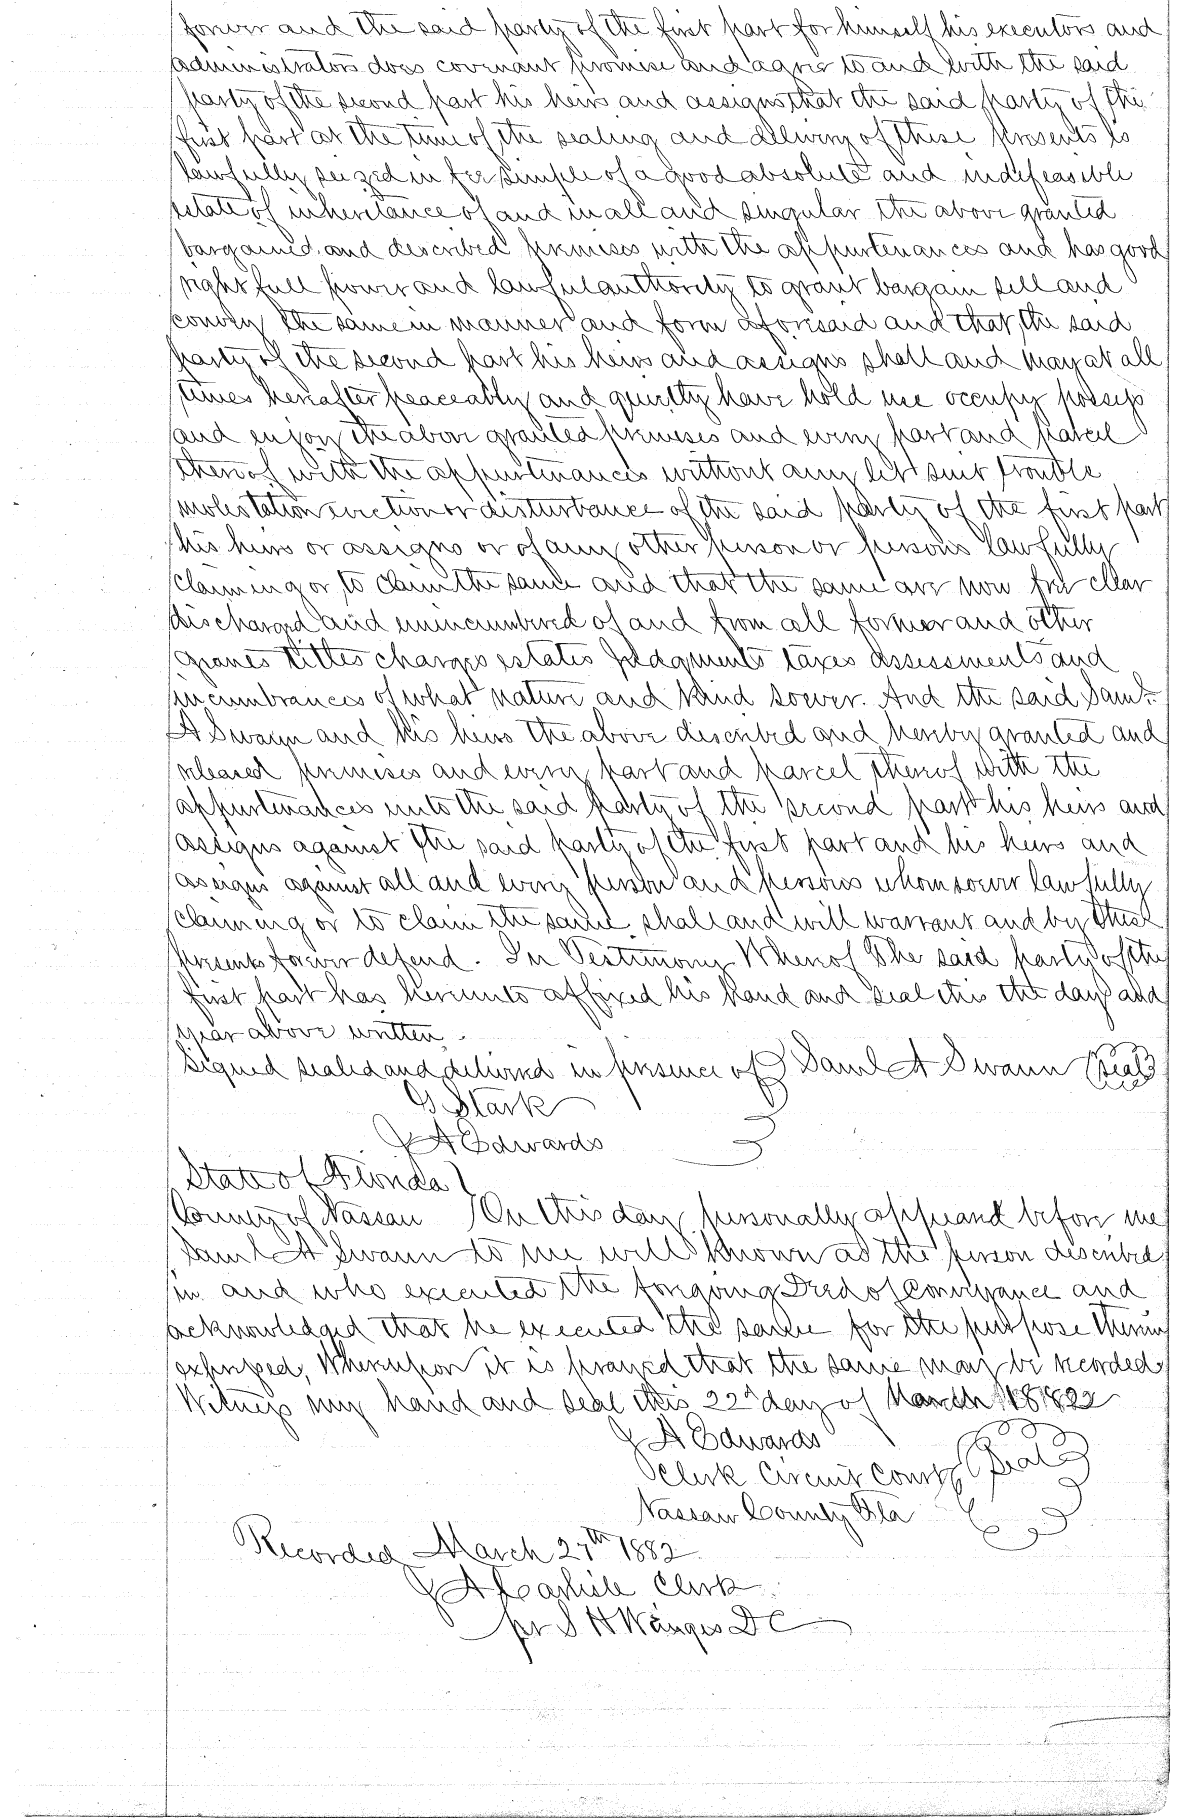 forever and the said party of the first part for himself his executors and
administrators does covenant promise and agree to and with the said
party of the second part his heirs and assigns that the said party of the
first part at the time of the sealing and delivery of these presents is
lawfully seized in fee simple of a good absolute and indefeasible
estate of inheritance of and in all and singular the above granted
bargained and described premises with the appurtenances and has good
right full power and lawful authority to grant bargain sell and
convey the same in manner and form aforesaid and that the said
party of the second part his heirs and assigns shall and may at all
times hereafter peaceably and quietly have hold use occupy possess
and enjoy the above granted premises and every part and parcel
thereof with the appurtenances without any let suit trouble
molestation eviction or disturbance of the said party of the first part
his heirs or assigns or of any other person or persons lawfully
claiming or to claim the same and that the same are now free clear
discharged and unincumbered of and from all former and other
titles charges estates Judgments taxes assessments and
incumbrances of what nature and kind soever. And the said Saml
A Swann and his heirs the above described and hereby granted and
released premises and every part and parcel thereof with the
appurtenances unto the said party of the second part his heirs and
assigns against the said party of the first part and his heirs and
assigns against all and every person and persons whomsoever lawfully
claiming or to claim the same shall and will warrant and by these
presents forever defend. In Testimony Whereof The said party of the
first part has hereunto affixed his hand and seal this the day and
year above written.
Signed sealed and delivered in presence of } Saml A Swann (Seal)
G Stark
J A Edwards
State of Florida }
County of Nassau } On this day personally appeared before me
Saml A Swann to me well known as the person described
in and who executed the forgoing Deed of Conveyance and
acknowledged that he executed the same for the purpose therein
expressed, Whereupon it is prayed that the same may be recorded
Witness my hand and seal this 22d day of March 1882
J A Edwards
Clerk Circuit Court (Seal)
Nassau County Fla
Recorded March 27th 1882
J A Carlile Clerk
pr S H DC